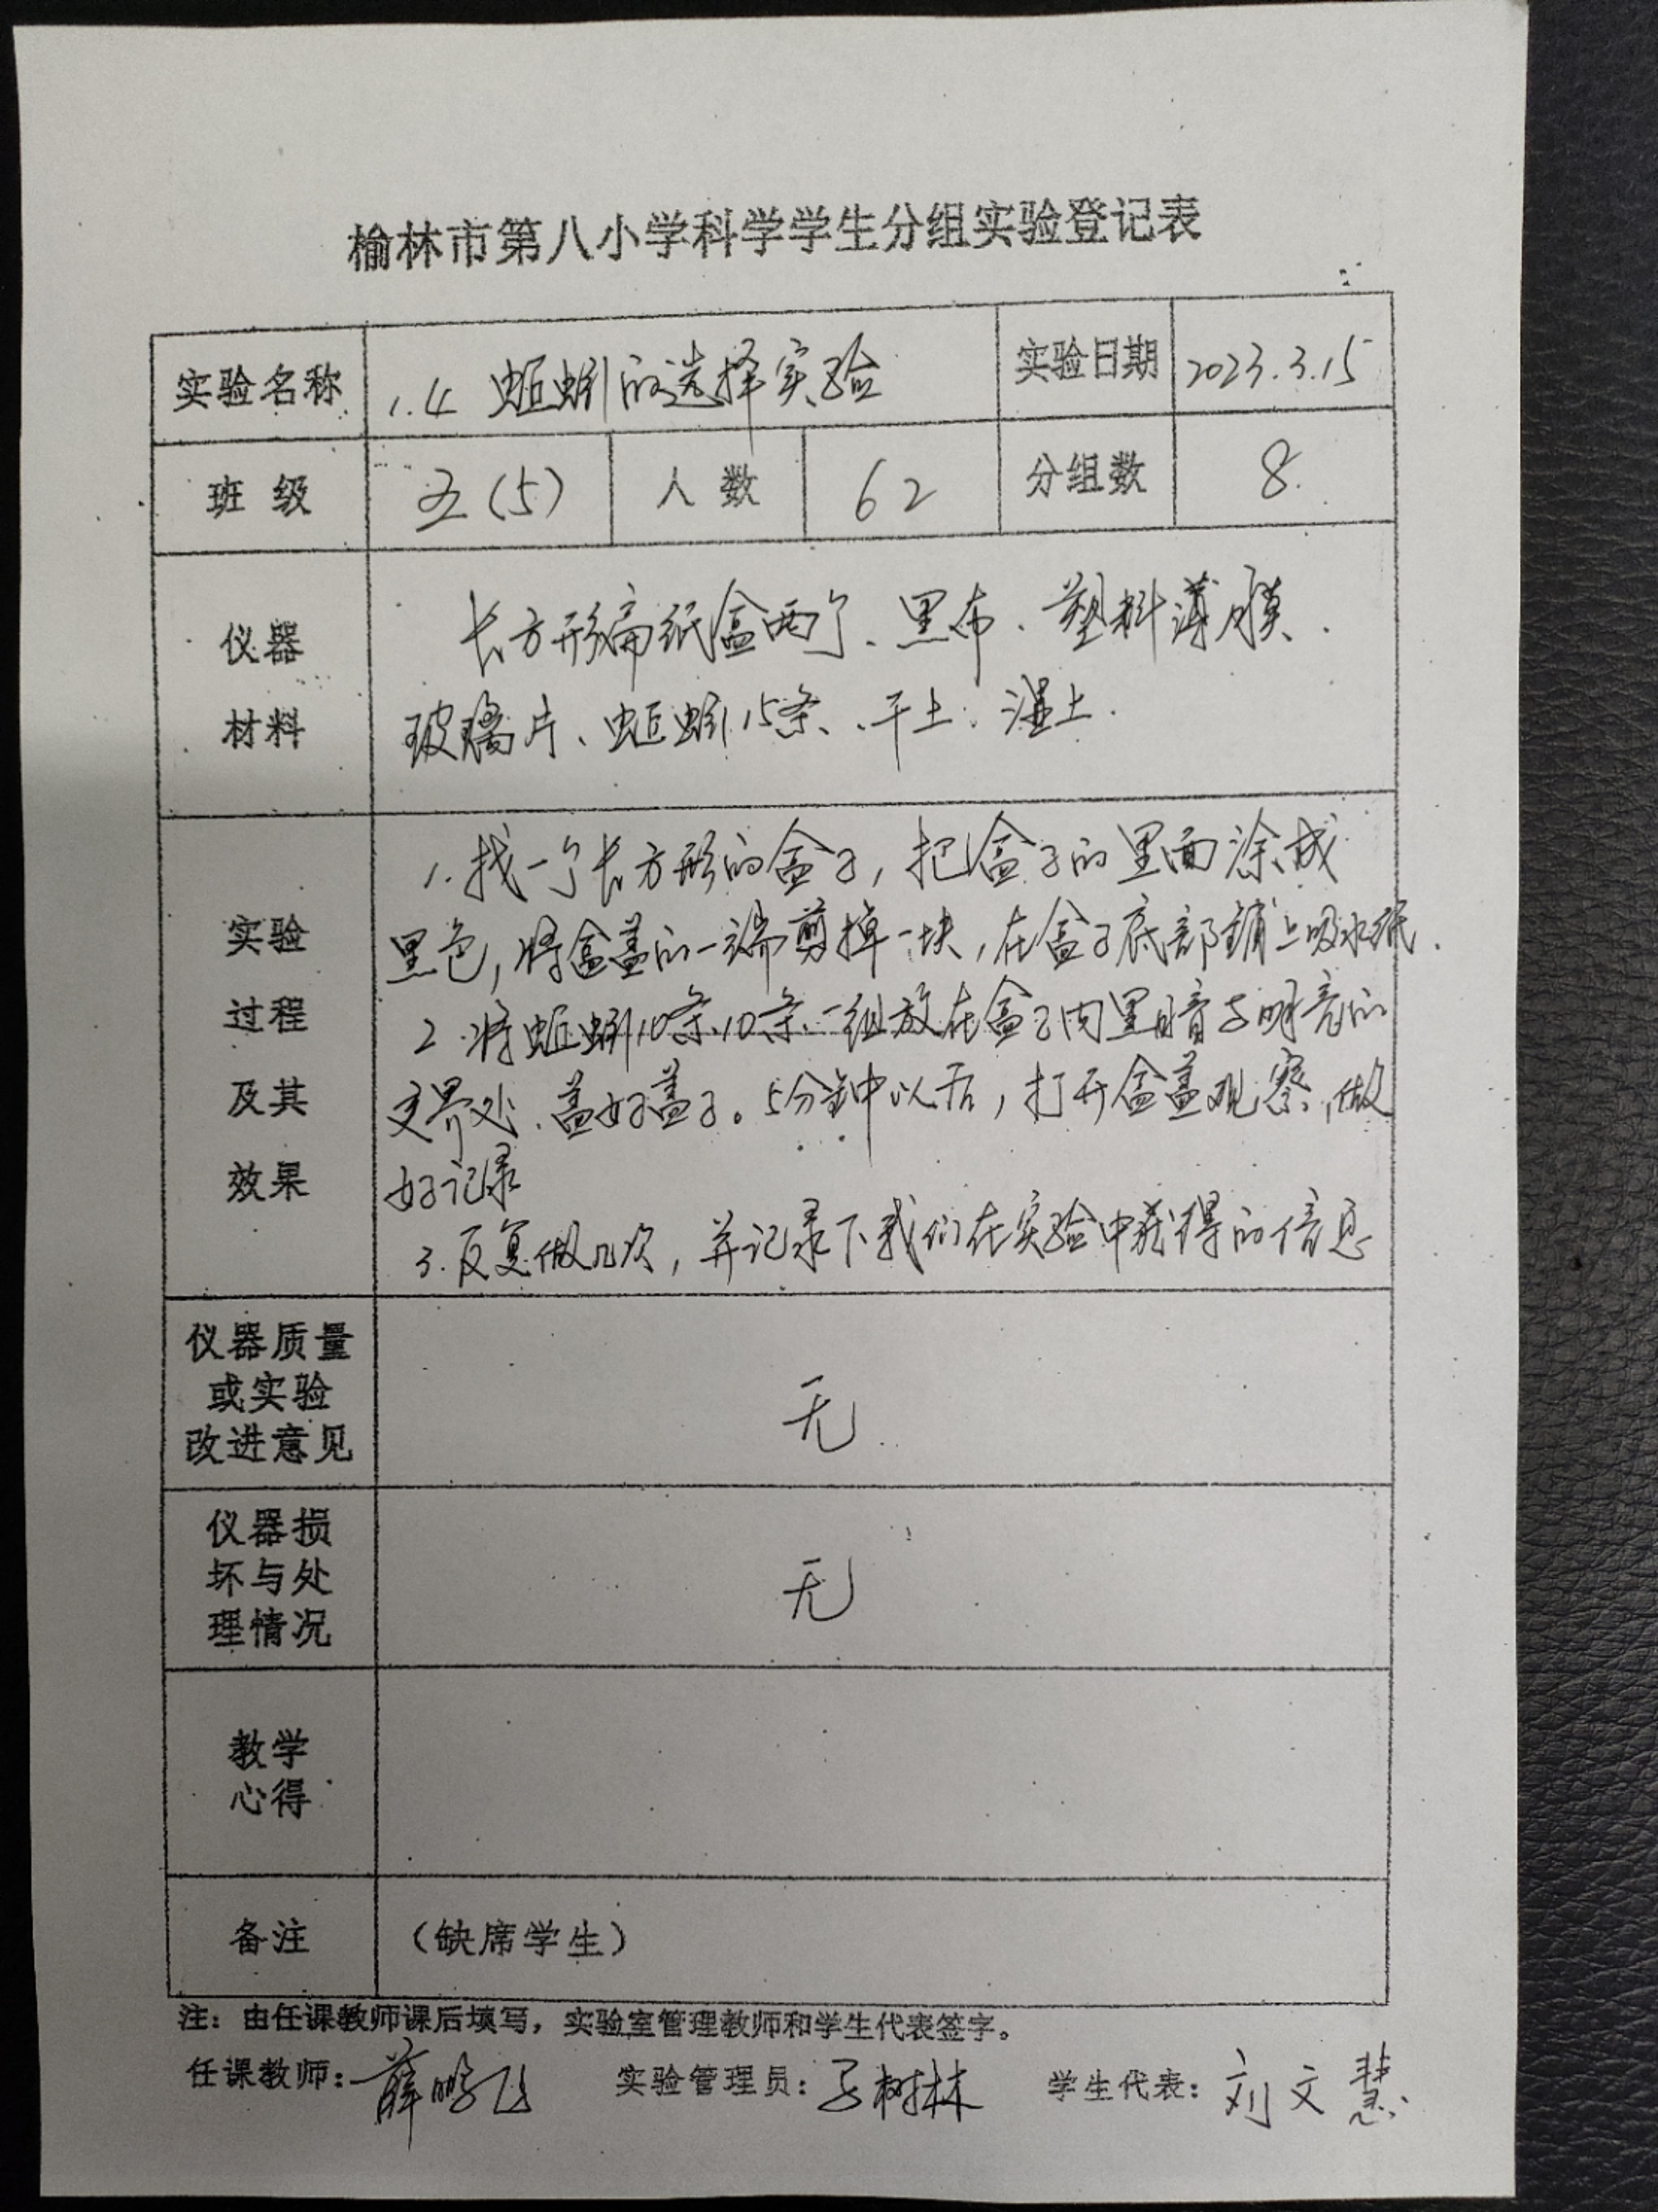 榆林市第八小学科学学生分组实验登记表
实验名称 1.4 蚯蚓的选择实验 实验日期 2023.3.15
班级 五(5) 人数 62 分组数 8
仪器 长方形扁纸盒两个、黑布、塑料薄膜、
材料 玻璃片、蚯蚓15条、干土、湿土.
1.找一个长方形的盒子,把盒子的里面涂成
实验 黑色,将盒盖的一端剪掉一块,在盒子底部铺上吸水纸.
过程 2.将蚯蚓10条、10条、一组放在盒子内黑暗与明亮的
及其 交界处、盖好盖子。5分钟以后,打开盒盖观察,做
效果 好记录
3.反复做几次,并记录下我们在实验中获得的信息
仪器质量
或实验 无
改进意见
仪器损
坏与处 无
理情况
教学
心得
备注 (缺席学生)
注:由任课教师课后填写,实验室管理教师和学生代表签字。
任课教师:薛鹏飞 实验管理员:树林 学生代表:刘文慧